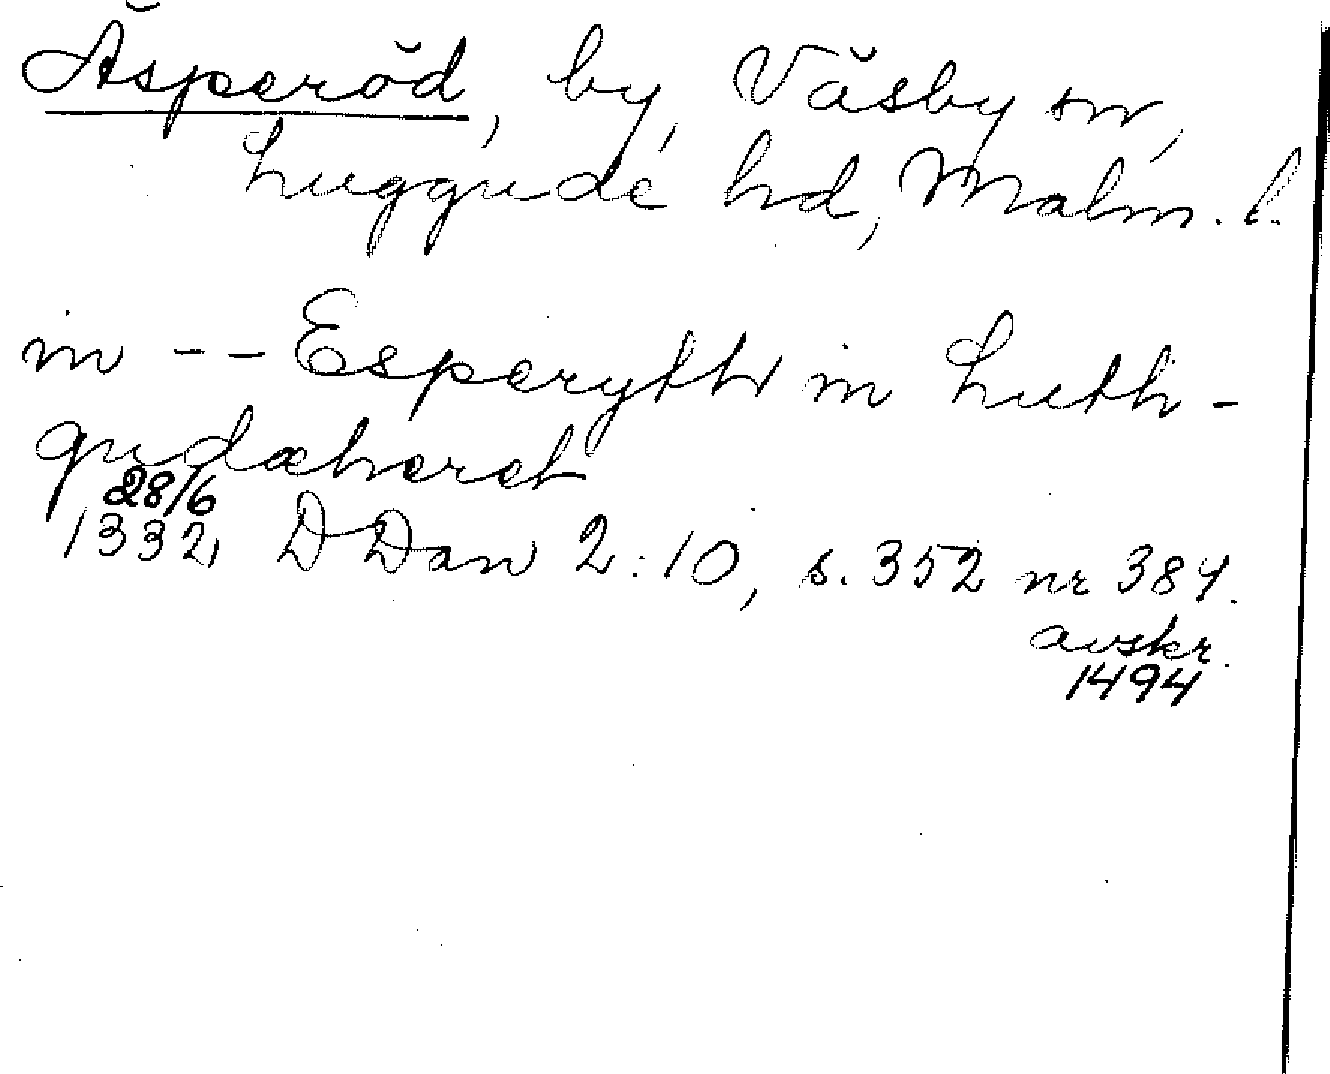 Äsperöd, by, Väsby sn,
Luggude hd, Malm. l.
in -- Esperyth in Luth-
gudæheret
28/6
1332, DDan 2:10, s. 352 nr 384.
avskr.
1494